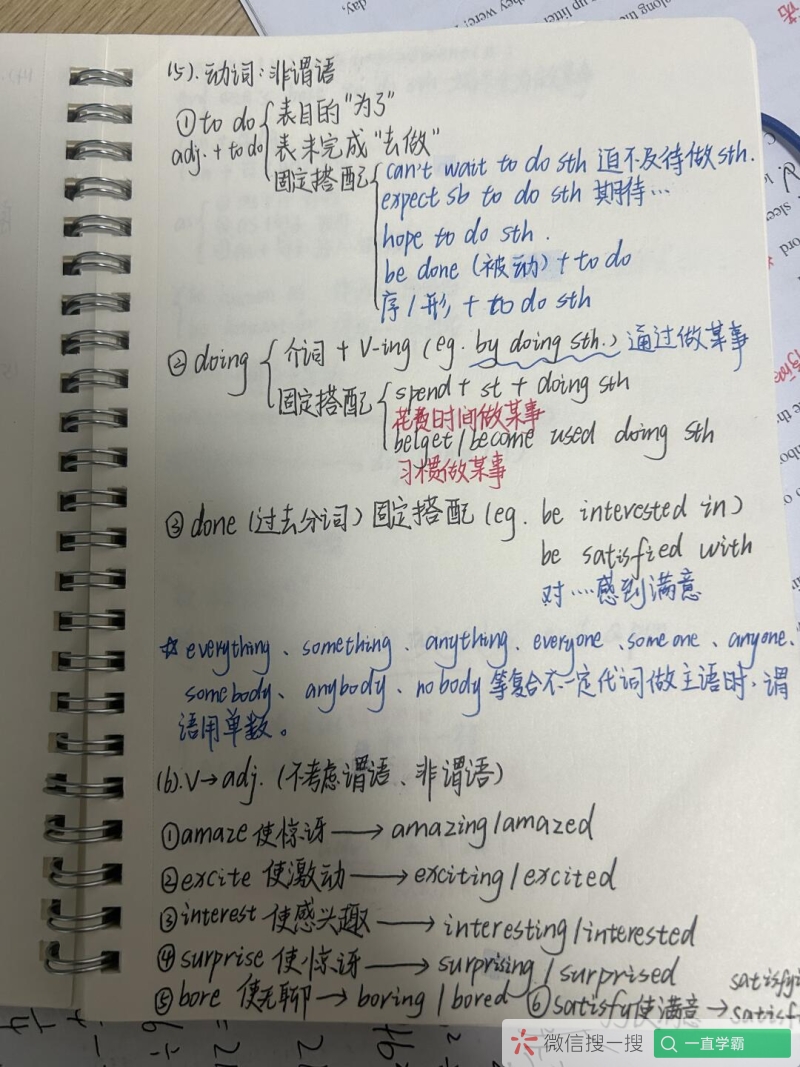 (5).动词:非谓语
①to do 表目的"为了"
adj.+to do 表未完成"去做"
固定搭配 can't wait to do sth 迫不及待做sth.
expect sb to do sth 期待…
hope to do sth.
be done (被动)+to do
序/形 + to do sth
②doing 介词 + V-ing (eg. by doing sth.) 通过做某事
固定搭配 spend + st + doing sth
花费时间做某事
be/get/become used doing sth
习惯做某事
③done (过去分词) 固定搭配 (eg. be interested in)
be satisfied with
对…感到满意
☆ everything、something、anything、everyone、someone、anyone、
somebody、anybody、nobody等复合不定代词做主语时,谓
语用单数。
(6).V→adj. (不考虑谓语、非谓语)
①amaze 使惊讶→amazing/amazed
②excite 使激动→exciting/excited
③interest 使感兴趣→interesting/interested
④surprise 使惊讶→surprising/surprised
⑤bore 使无聊→boring/bored ⑥satisfy使满意→
微信搜一搜 一直学霸